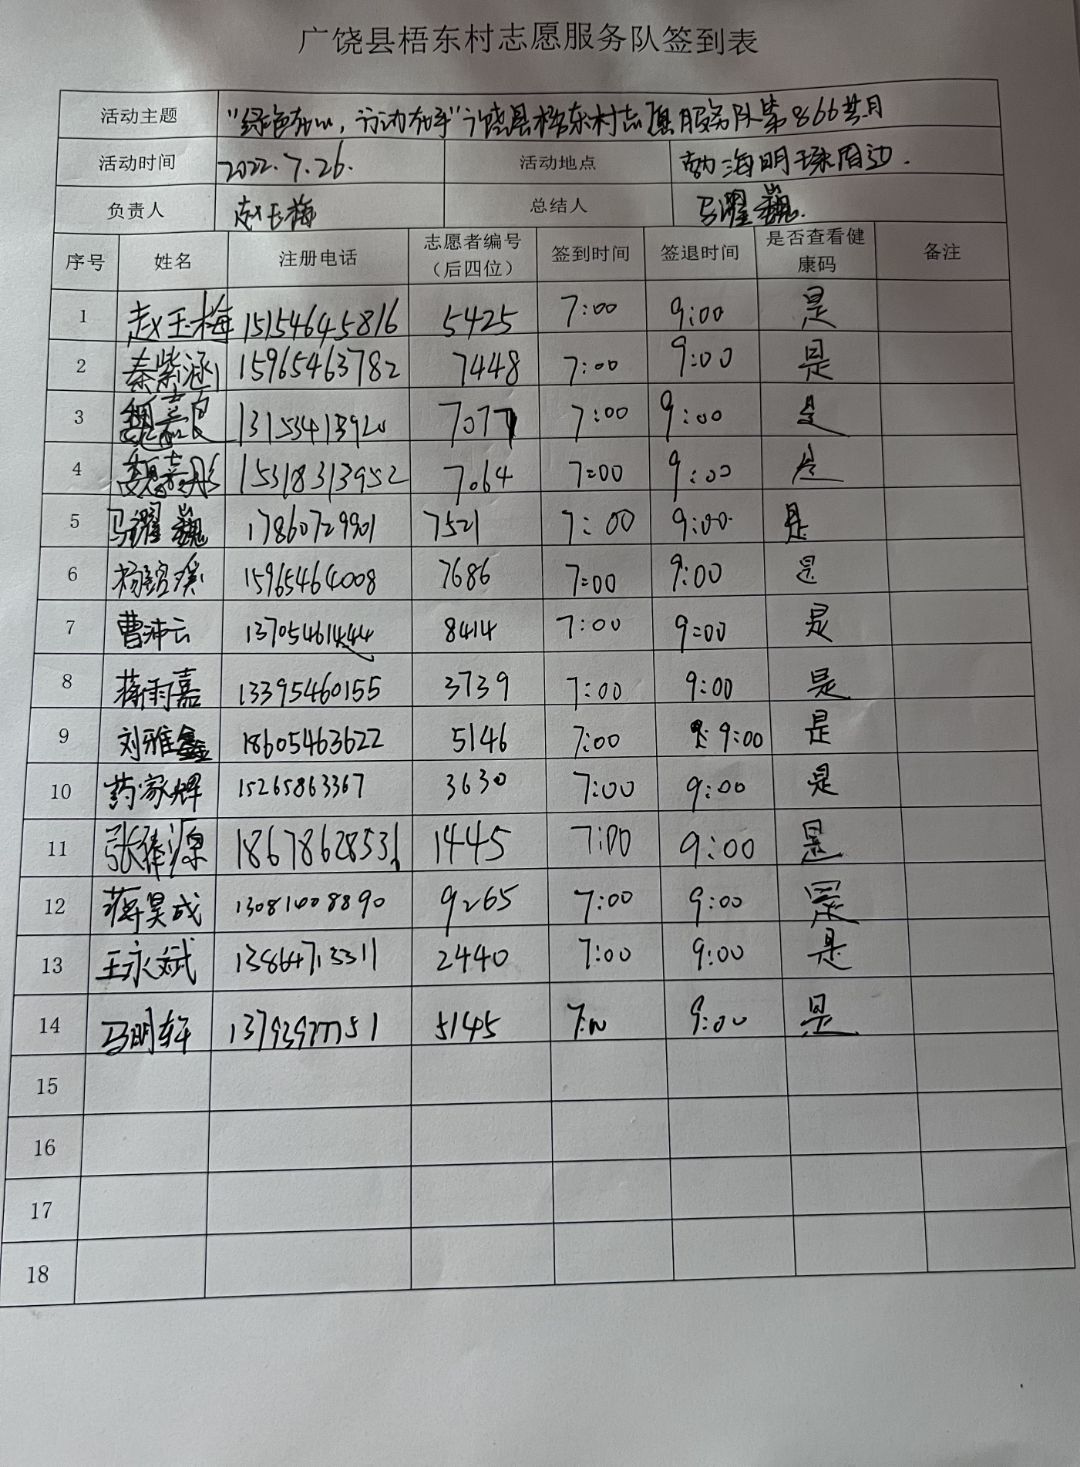 广饶县梧东村志愿服务队签到表
活动主题 "绿色在心，行动在手"广饶县梧东村志愿服务队第866共月
活动时间 2022.7.26. 活动地点 勃海明珠周边.
负责人 赵玉梅 总结人 马濯巍.
序号 姓名 注册电话 志愿者编号（后四位） 签到时间 签退时间 是否查看健康码 备注
1 赵玉梅 15154645816 5425 7:00 9:00 是
2 秦紫涵 15965463782 7448 7:00 9:00 是
3 魏嘉良 13153413920 7077 7:00 9:00 是
4 魏嘉彤 15318313952 7064 7:00 9:00 是
5 马濯巍 17860729901 7521 7:00 9:00 是
6 15965464008 7686 7:00 9:00 是
7 曹沛云 13705461444 8414 7:00 9:00 是
8 蒋雨嘉 13395460155 3739 7:00 9:00 是
9 刘雅鑫 18605463622 5146 7:00 9:00 是
10 药家辉 15265863367 3630 7:00 9:00 是
11 18678628531 1445 7:00 9:00 是
12 蒋昊成 13081408890 9265 7:00 9:00 是
13 王永斌 13864713311 2440 7:00 9:00 是
14 马明轩 5145 7:00 9:00 是
15
16
17
18